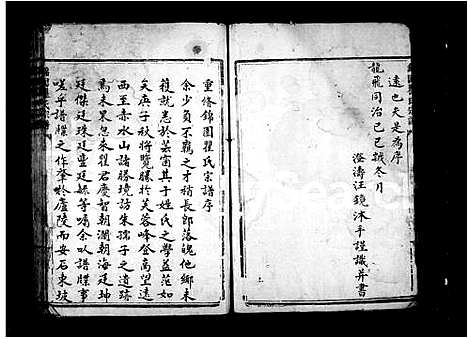 遠也夫是為序
龍飛同治己巳歲冬月
澄濤汪鏡沐手謹識并書
重修錦園瞿氏宗譜序
余少負不羈之才稍長即落魄他鄉未
獲就志於芸甯其于姓氏之學益茫如
矣庚子秋將覽勝於芙蓉峰登高望遠
西至赤水山諸勝境訪朱孺子之遺跡
焉未果忽來瞿君慶智朝瀾朝海廷坤
廷傑廷珠廷璽廷縣等囑余以譜牒事
嗟乎譜牒之作肇於廬陵而安石東坡